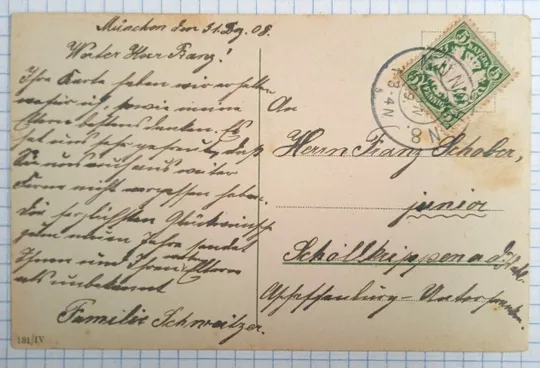 München den 31. Dez. 08.
Werter Herr Franz!
Ihre Karte haben wir erhalten
wofür ich, sowie meine
Eltern bestens danken. Es
hat uns sehr gefreut, daß
Sie uns auch aus weiter
Ferne nicht vergessen haben.
Die herzlichsten Glückwünsche
zum neuen Jahre sendet
Ihnen und Ihren Eltern
als unbekannt
Familie Schweitzer.
An
Herrn Franz Schober,
junior
Schöllkrippen
Aschaffenburg - Unterfranken.
BAYERN
5
181/IV